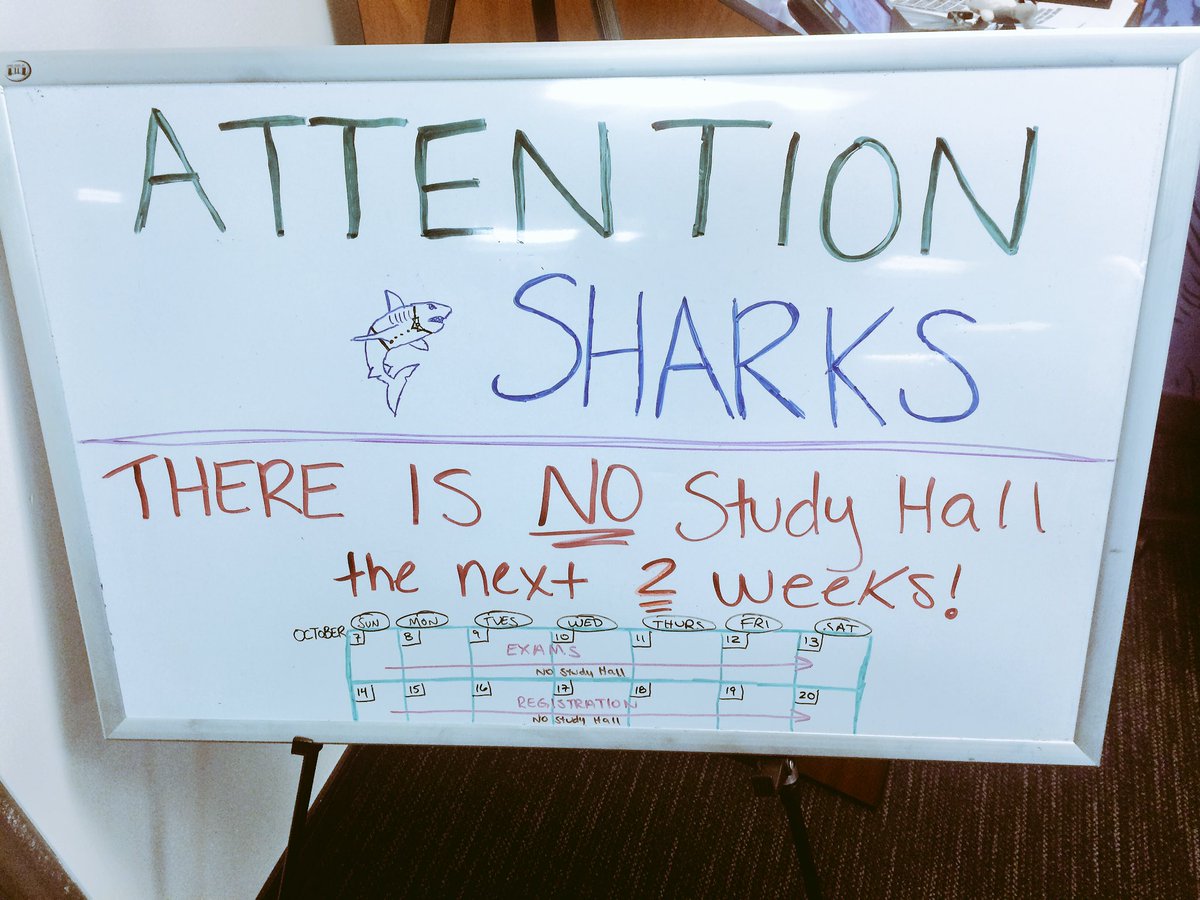 ATTENTION
SHARKS
THERE IS NO Study Hall
the next 2 weeks!
SUN MON TUES WED THURS FRI SAT
OCTOBER 7 8 9 10 11 12 13
EXAMS
No Study Hall
14 15 16 17 18 19 20
REGISTRATION
No Study Hall